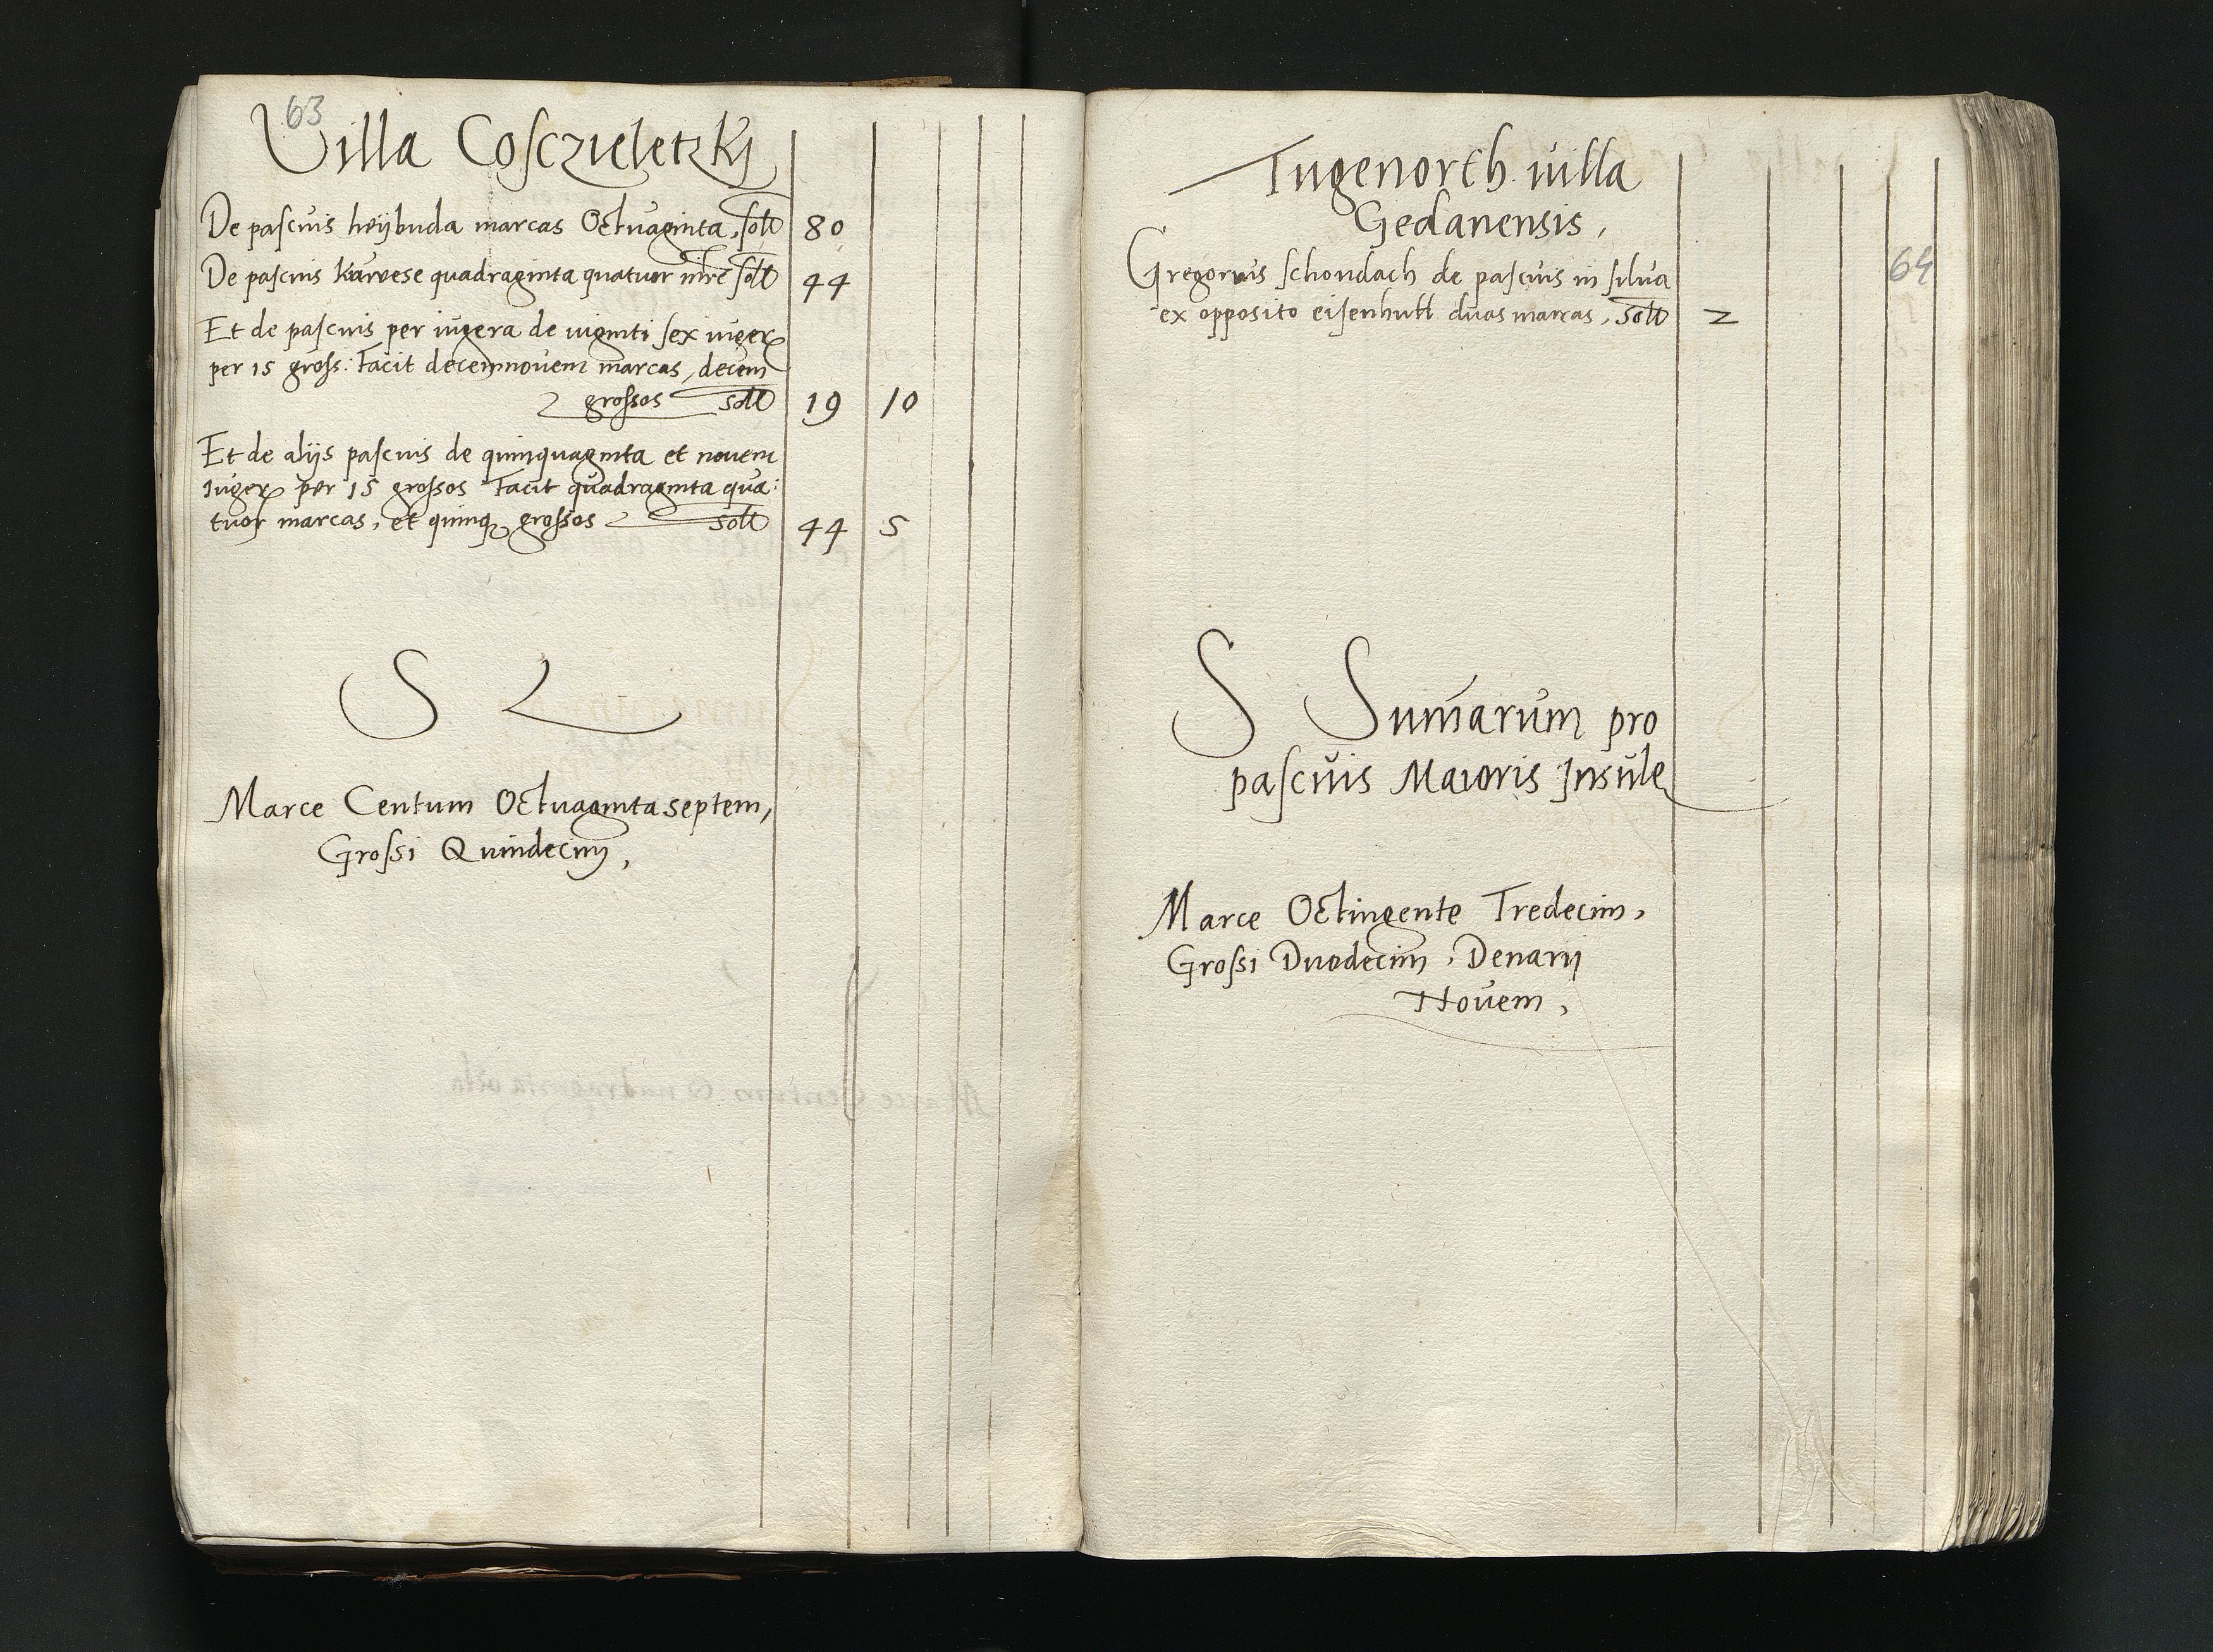 63
Villa Cosczieletzkj
De pascuis heijbuda marcas Octuaginta, solt 80
De pascuis karwese quadraginta quatuor mrc solt 44
Et de pascuis per iugera de viginti sex iuger
per 15 gross: Facit decemnovem marcas, decem
grossos solt 19 10
Et de alijs pascuis de quinquaginta et novem
Iuger per 15 grossos Facit quadraginta qua:
tuor marcas, et quinq grossos solt 44 5
S L
Marce Centum Octuaginta septem,
Grossi Quindecim,
64
Tugenorth villa
Gedanensis,
Gregorius schondach de pascuis in silva
ex opposito eisenhutt duas marcas, solt 2
S Sumarum pro
pascuis Maioris Insule
Marce Octingente Tredecim,
Grossi Duodecim, Denarij
Novem,